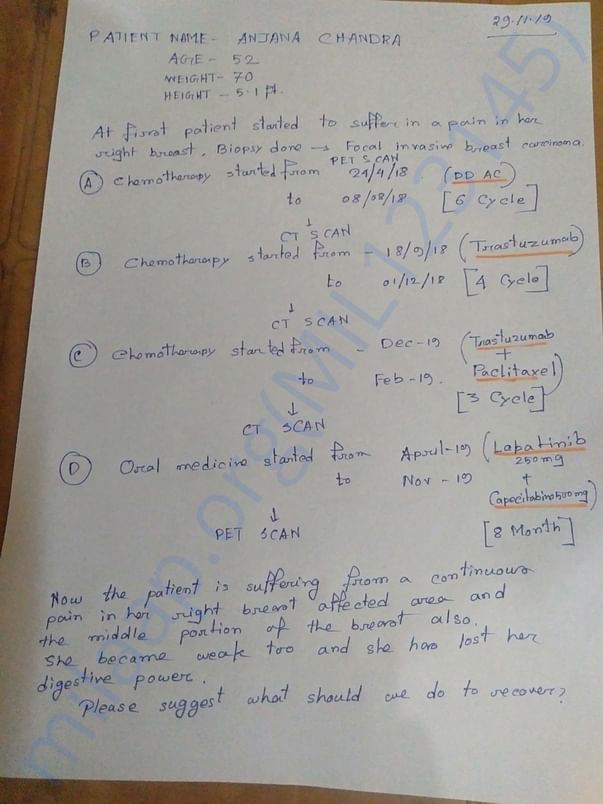 29.11.19
PATIENT NAME - ANJANA CHANDRA
AGE - 52
WEIGHT - 70
HEIGHT - 5.1 ft.
At first patient started to suffer in a pain in her
right breast, Biopsy done → Focal invasive breast carcinoma.
PET SCAN
(A) Chemotherapy started from 24/4/18. (DD AC)
to 08/08/18 [6 Cycle]
↓
CT SCAN
(B) Chemotherapy started from - 18/9/18 (Trastuzumab)
to 01/12/18 [4 Cycle]
↓
CT SCAN
(C) Chemotherapy started from - Dec-19 (Trastuzumab
+
to Feb-19. Paclitaxel)
[3 Cycle]
↓
CT SCAN
(D) Oral medicine started from April-19 (Lapatinib
250mg
to Nov-19 +
Capecitabine 500mg)
↓
PET SCAN [8 Month]
Now the patient is suffering from a continuous
pain in her right breast affected area and
the middle portion of the breast also.
She became weak too and she has lost her
digestive power.
Please suggest what should we do to recover?
milaap.org(MIL123145)